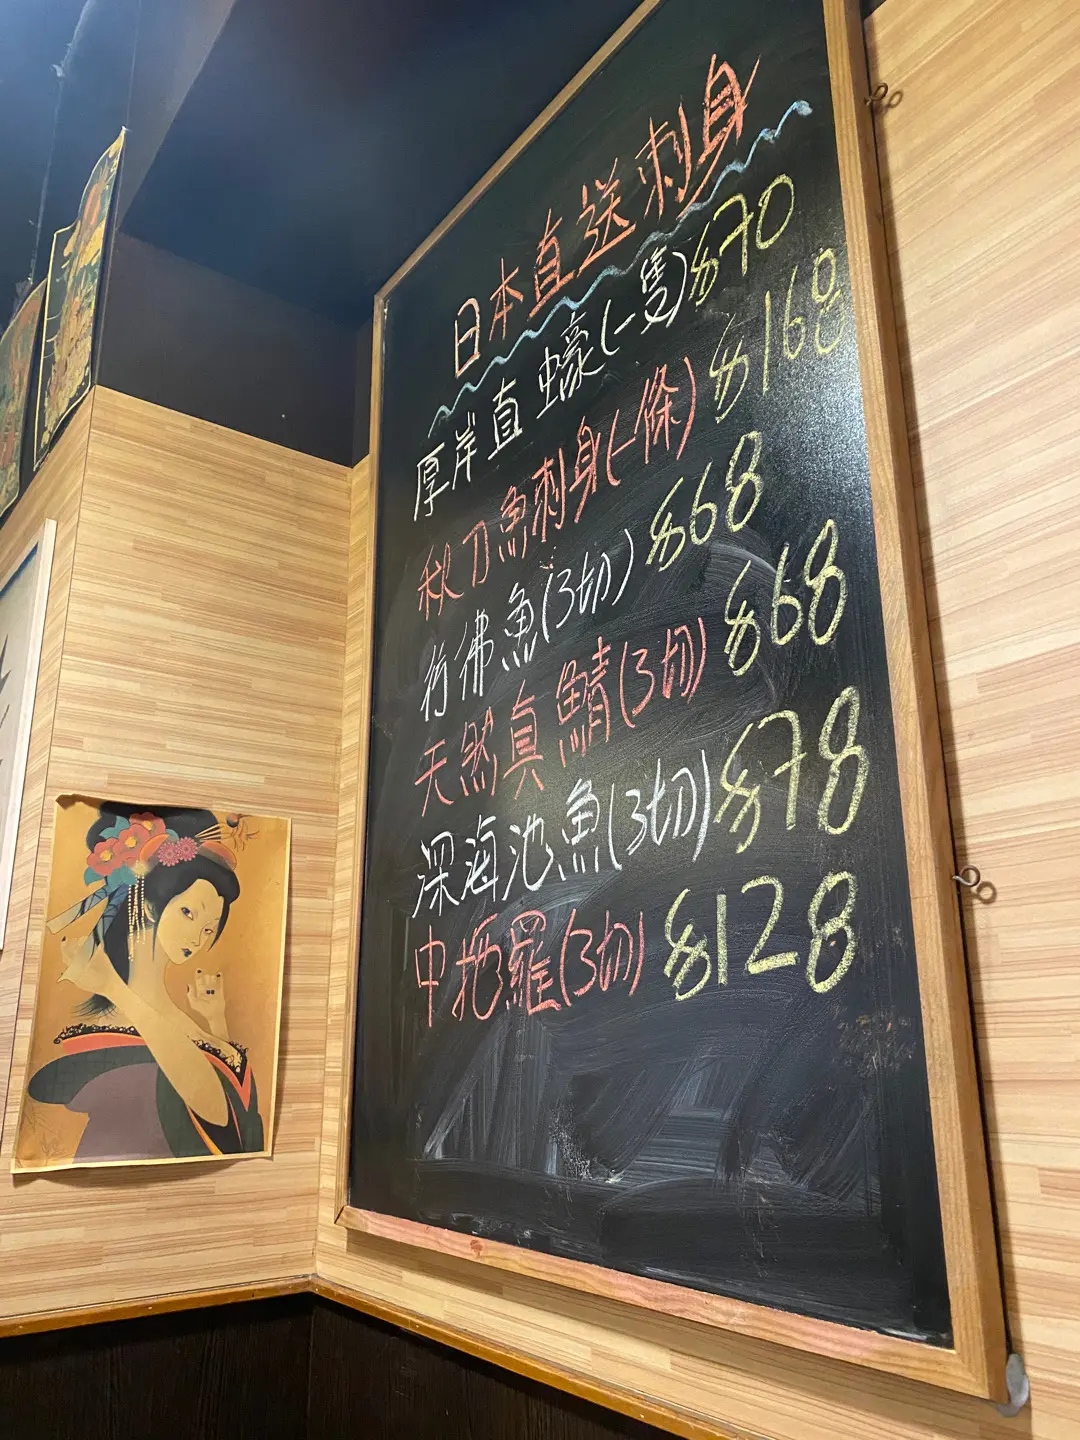 日本直送刺身
厚岸直蠔(一隻)$70
秋刀魚刺身(一條)$168
竹佛魚(3切)$68
天然真鯖(3切)$68
深海池魚(3切)$78
中拖羅(3切)$128